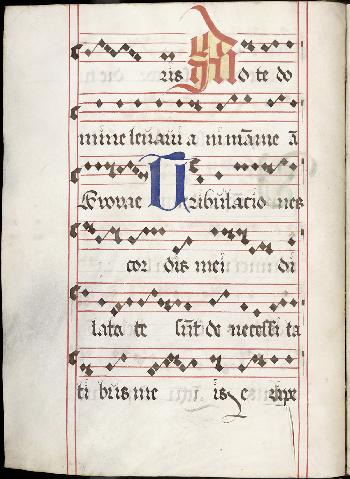 ris Ad te do
mine leuaui a nimāme ā
Euouae Tribulacio nes
cor dis mei di
lata te sūt de necessi ta
ti bus me is eripe